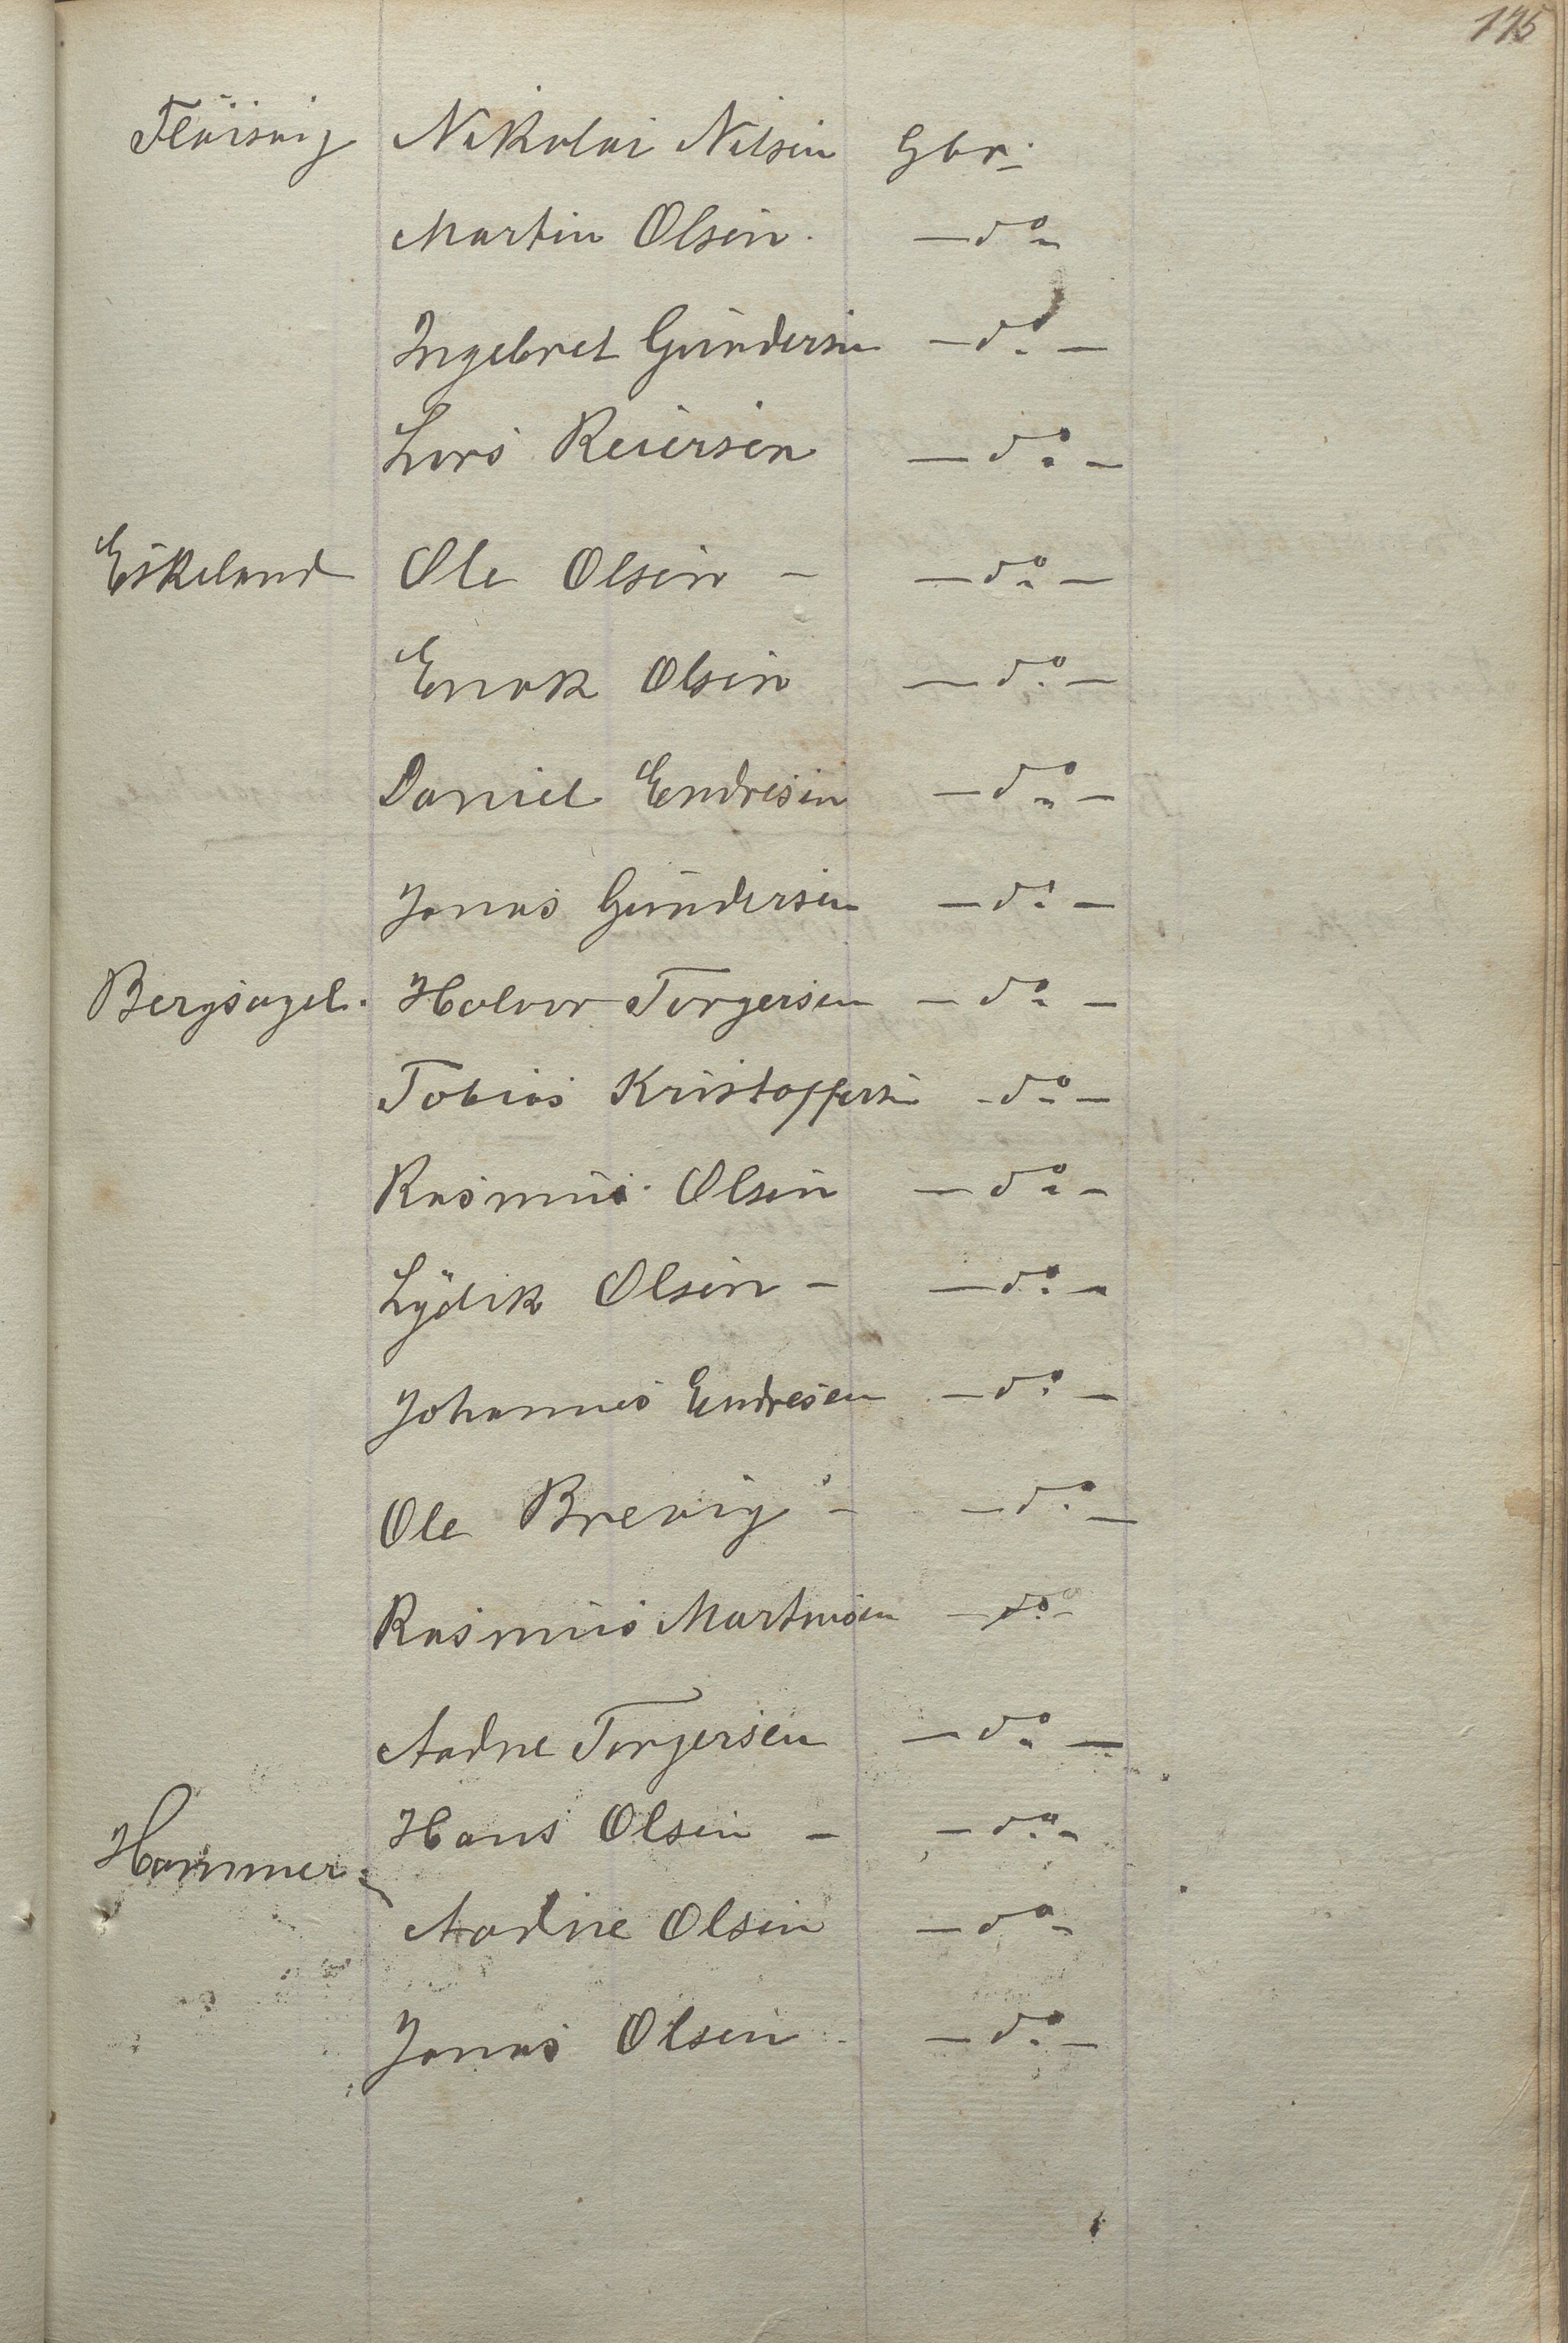 175
Fløisvig Nikolai Nilsen Gbr.
Martin Olsen. — do —
Ingebret Gundersen — do —
Lars Reiersen — do —
Eskeland Ole Olsen — — do —
Enok Olsen — do —
Daniel Endresen — do —
Jonas Gundersen — do —
Bergsagel. Halvor Torgersen — do —
Tobias Kristoffersen — do —
Rasmus Olsen — do —
Lydik Olsen — — do —
Johannes Endresen — do —
Ole Brevig — — do —
Rasmus Martinsen — do —
Aadne Torgersen — do —
Hammer. Hans Olsen — — do —
Aadne Olsen — do —
Jonas Olsen — do —